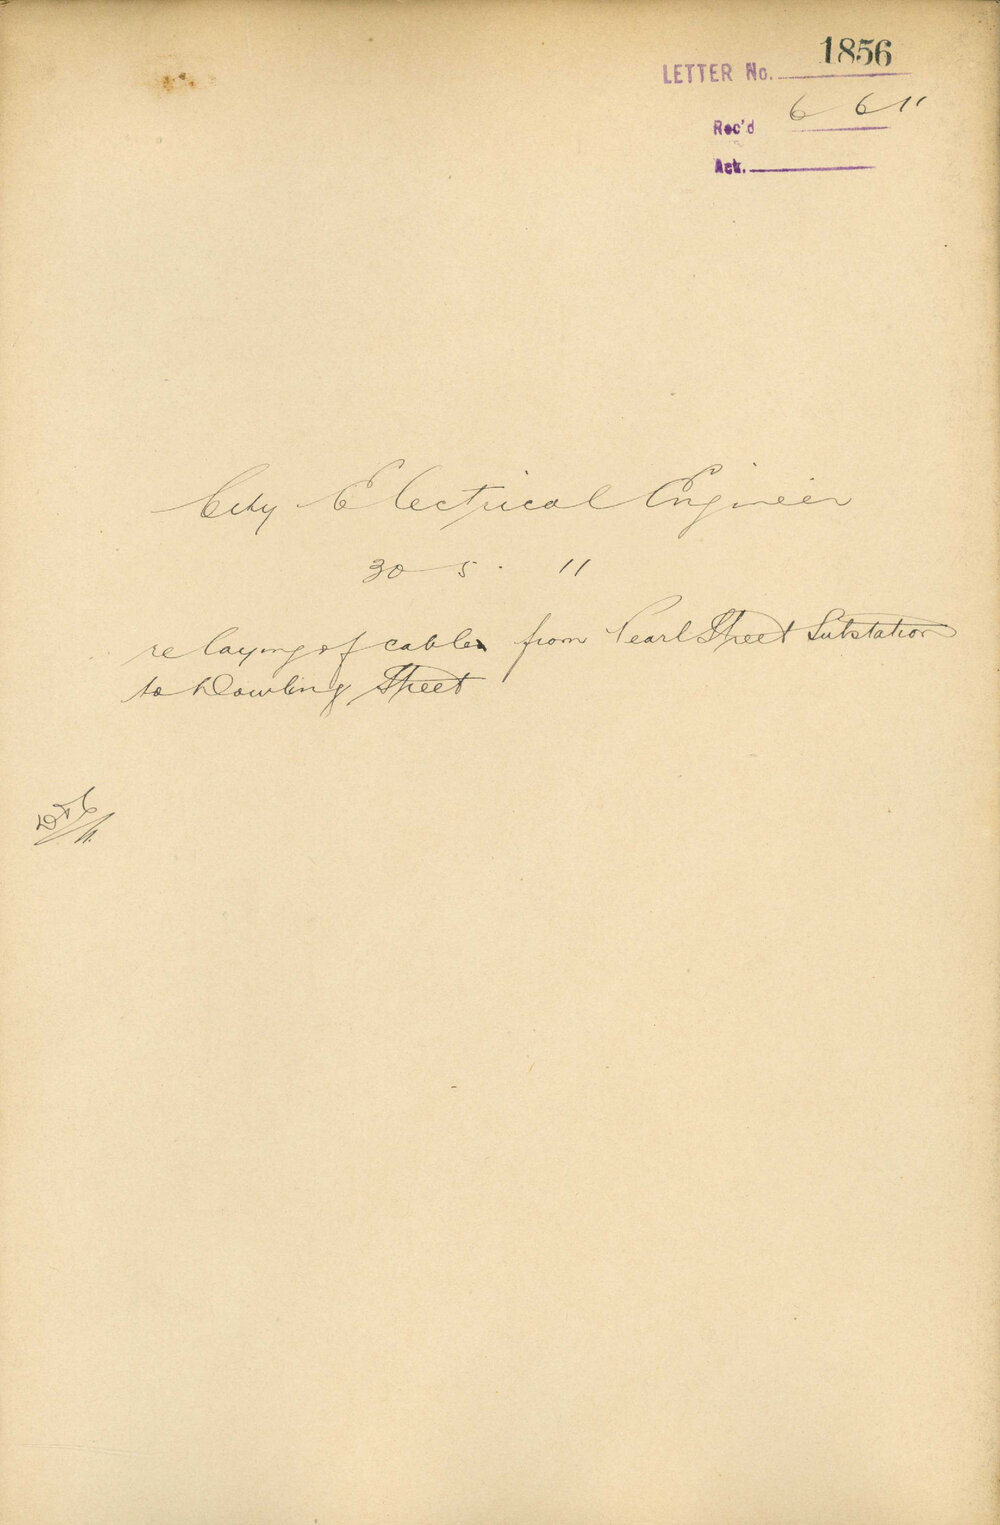 LETTER No. 1856
Rec'd 6 6 11
Ack.
City Electrical Engineer
30 5. 11
re laying of cables from Pearl Street Substation
to Dowling Street